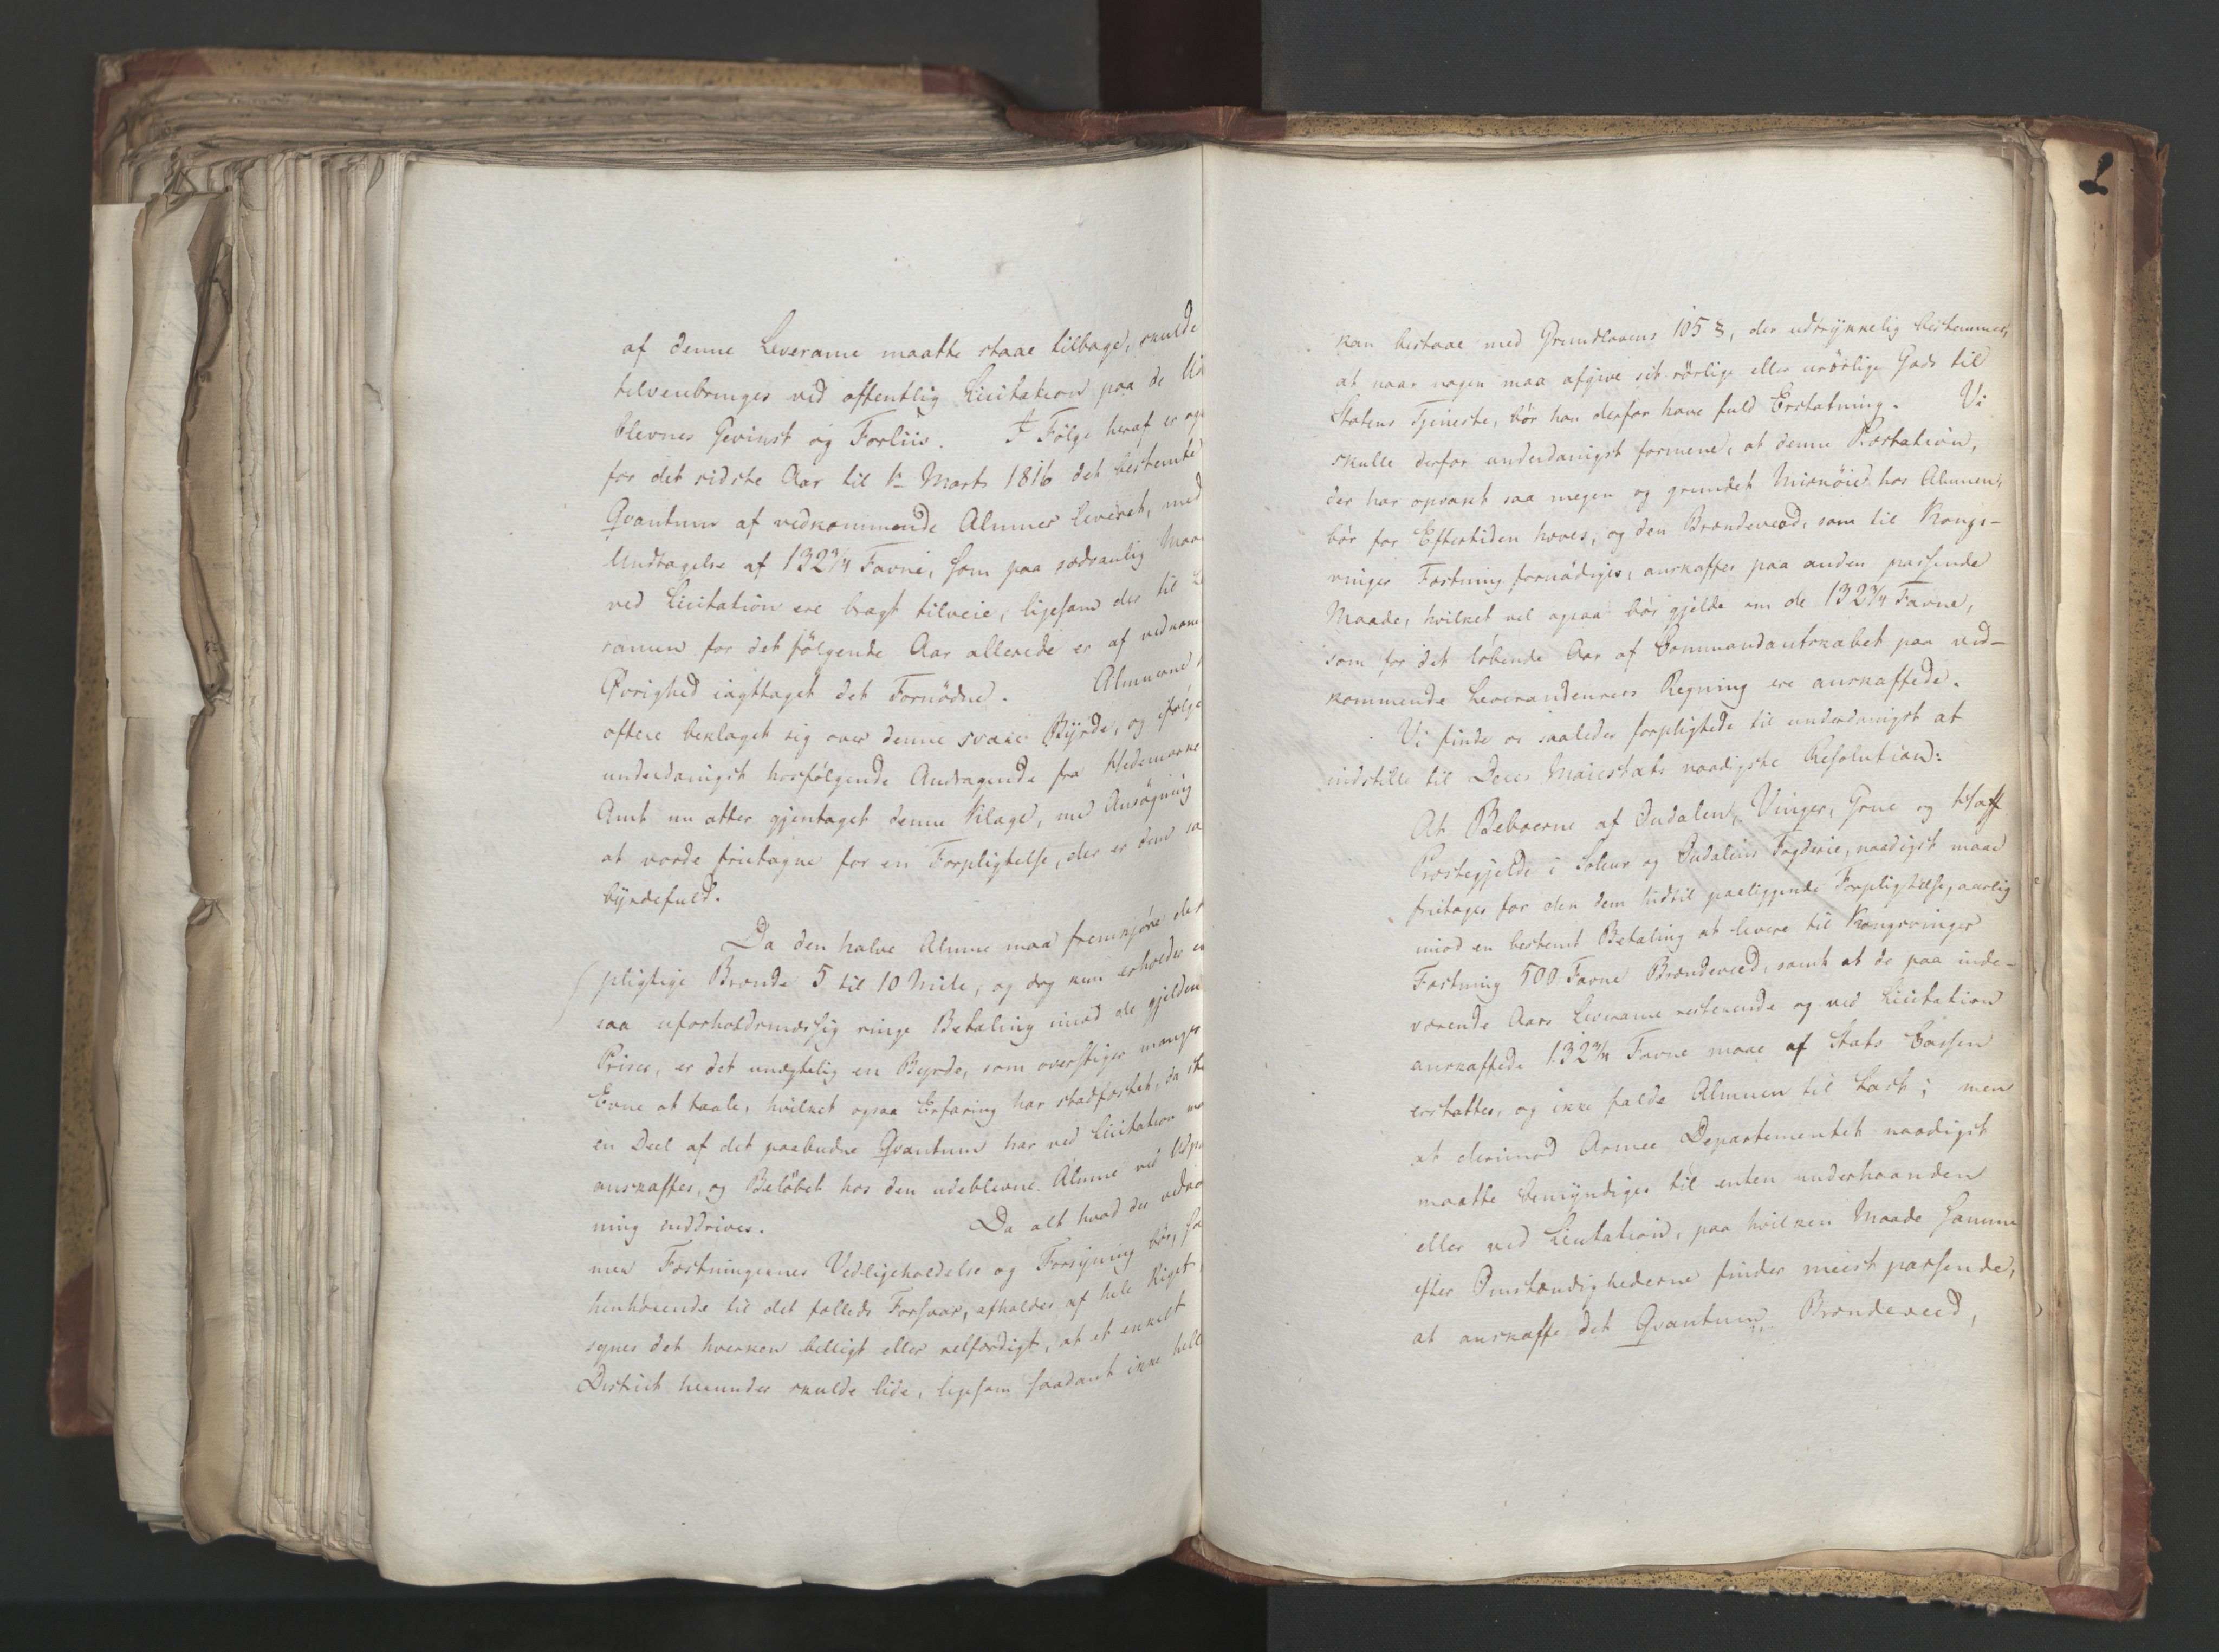 af denne Leverance maatte staae tilbage, skulde
tilveiebringes ved offentlig Licitation paa de Ude
blevnes Gevinst og Forliis. I Følge heraf er og
for det sidste Aar til 1te Marts 1816 det bestemte
Qvantum af vedkommende Almuer leveret, med
Undtagelse af 132¾ Favne, som paa sædvanlig Maa
ved Licitation ere bragt tilveie, ligesom der til Le
rancen for det følgende Aar allerede er af vedkom
Øvrighed iagttaget det Fornødne. Almuerne
oftere beklaget sig over denne svære Byrde, og ifølge
underdanigst hosfølgende Andragende fra Hedemarke
Amt nu atter gjentaget denne Klage, med Ansøgning
at vorde fritagne for en Forpligtelse, der er dem saa
byrdefuld.
Da den halve Almue maa fremkjøre den
pligtige Brænde 5 til 10 Mile, og dog kun erholder en
saa uforholdsmæssig ringe Betaling imod de gjelden
Priser, er det unægtelig en Byrde, som overstiger manges
Evne at taale, hvilket ogsaa Erfaring har stadfæstet, da stor
en Deel af det paabudne Qvantum har ved Licitation maa
anskaffes, og Beløbet hos den udeblevne Almue ved Udpa
ning inddrives. Da alt hvad der vedkom
mer Fæstningernes Vedligeholdelse og Forsyning bør, som
henhørende til det fælleds Forsvar, afholdes af hele Riget,
synes det hverken billigt eller retfærdigt, at et enkelt
District herunder skulde lide, ligesom saadant ikke hell
kan bestaae med Grundlovens 105 §, der udtrykkelig bestemmer,
at naar nogen maa afgive sit rörlige eller urörlige Gods til
Statens Tjeneste, bör han derfor have fuld Erstatning. Vi
skulle derfor underdanigst formene, at denne Præstation,
der har opvakt saa megen og grundet Misnöie hos Almuen,
bör for Eftertiden hæves, og den Brændeveed, som til Kongs-
vinger Fæstning fornödiges, anskaffes paa anden passende
Maade, hvilket vel ogsaa bör gjelde om de 132¾ Favne,
som for det löbende Aar af Commandantskabet paa ved-
kommende Leverandeurers Regning ere anskaffede.
Vi finde os saaledes forpligtede til underdanigst at
indstille til Deres Majestæts naadigste Resolution:
At Beboerne af Oudalen, Vinger, Grue og Hoff
Præstegjelde i Soleur og Oudalens Fogderie, naadigst maae
fritages for den dem hidtil paaliggende Forpligtelse, aarlig
imod en bestemt Betaling at levere til Kongsvinger
Fæstning 500 Favne Brændeveed, samt at de paa inde-
værende Aars Leverance resterende og ved Licitation
anskaffede 132¾ Favne maae af Stats Cassen
erstattes, og ikke falde Almuen til Last; men
at derimod Armee Departementet naadigst
maatte bemyndiges til enten underhaanden
eller ved Licitation, paa hvilken Maade samme
efter Omstændighederne finder meest passende,
at anskaffe det Qvantum Brændeveed,